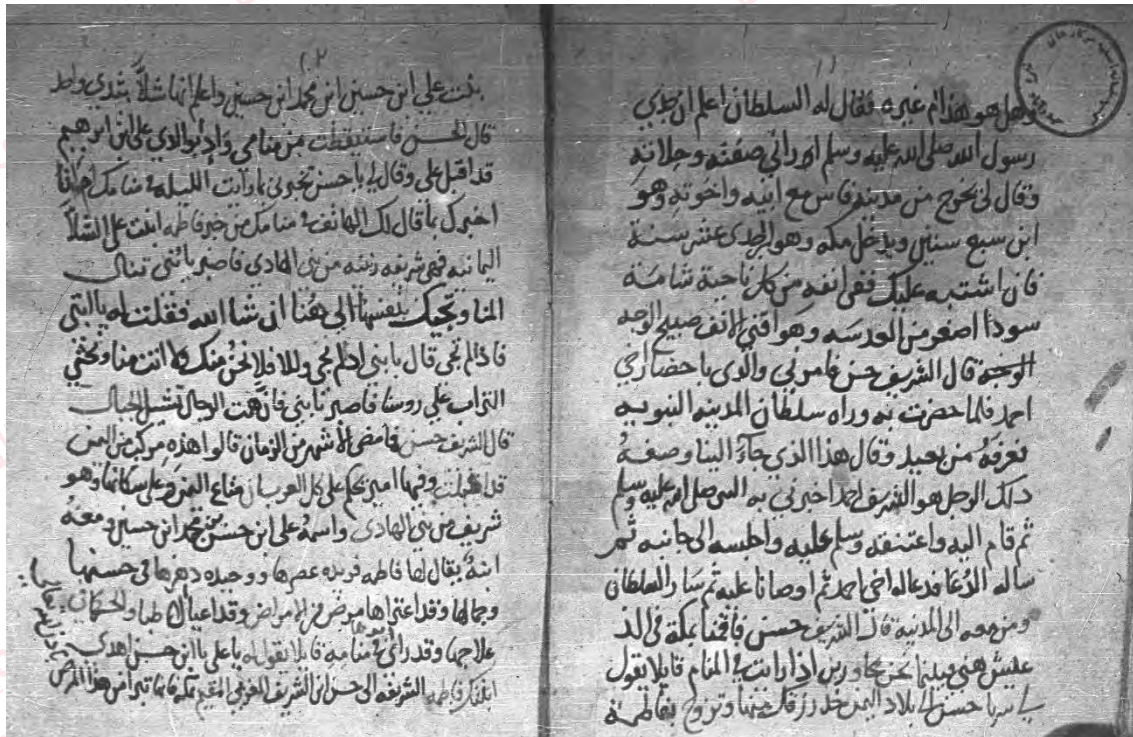 وهل هو هذا ام غيره فقال له السلطان اعلم ان جدي
رسول الله صلى الله عليه وسلم اوراني صفته وجلانه
وقال لى يخرج من مدينة فاس مع ابيه واخوته وهو
ابن سبع سنين ويدخل مكه وهو احدى عشر سنة
فان اشتبه عليك ففى انفه من كل ناحية شامة
سودا اصغر من العدسه وهو اقنى الانف صبيح الوجه
الوجنة قال الشريف حسن فامرنى والدى باحضار اخي
احمد فلما حضرت به وراه سلطان المدينه النبويه
فعرفه من بعيد وقال هذا الذي جآء الينا وصفه
ذلك الرجل هو الشريف احمد اخبرني به النبي صلى الله عليه وسلم
ثم قام اليه واعتنقه وسلم عليه واجلسه الى جانبه ثم
ساله الدعا فدعا له اخى احمد ثم اوصانا عليه ثم سار السلطان
ومن معه الى المدينة قال الشريف حسن فاقمنا بمكه فى الذ
عيش هني فبينما نحن مجاورين اذ رايت في المنام قايلا يقول
لي سر يا حسن الى بلاد اليمن خذ رزقك منها وتزوج بفاطمة
بنت علي ابن حسين ابن محمد ابن حسين واعلم انها شلآ بثدي واحد
قال الحسن فاستيقظت من منامى واذ بوالدي على ابن ابرهيم
قد اقبل على وقال لى يا حسن تخبرنى بما رايت الليله فى منامك ام انا
اخبرك بما قال لك الهاتف فى منامك من خبر فاطمه ابنت على الشلآ
اليمانيه فهى شريفه زينبه من بنى الهادي فاصبر يا بنى تناك
المنا وتجيك بنفسها الى هنا ان شا الله فقلت له يا ابتى
فاذا لم تجى قال يا بنى اذا لم تجى والا فلا نحن منك ولا انت منا وتحثي
التراب على روسنا فاصبر يا بنى فان همت الرجال تشيل الجبال
قال الشريف حسن فامضى الا شهر من الزمان قالوا هذه مركب من اليمن
قد اقبلت وفيها امير يحكم على كل العربان متاع اليمن وعلى سكانها وهو
شريف من بنى الهادى واسمه على ابن حسين بن محمد ابن حسين ومعه
ابنة يقال لها فاطمه فريده عصرها ووحيده دهرها فى حسنها
وجمالها وقد اعتراها مرض من الامراض وقد اعيا الاطبا والحكما فى
علاجها وقد راى فى منامه قايلا يقول له يا على يا ابن حسين اهدى
ابنتك فاطمه الشريفه الى حسن ابن الشريف المغربى المقيم بمكه فانها تبرا من هذا المرض